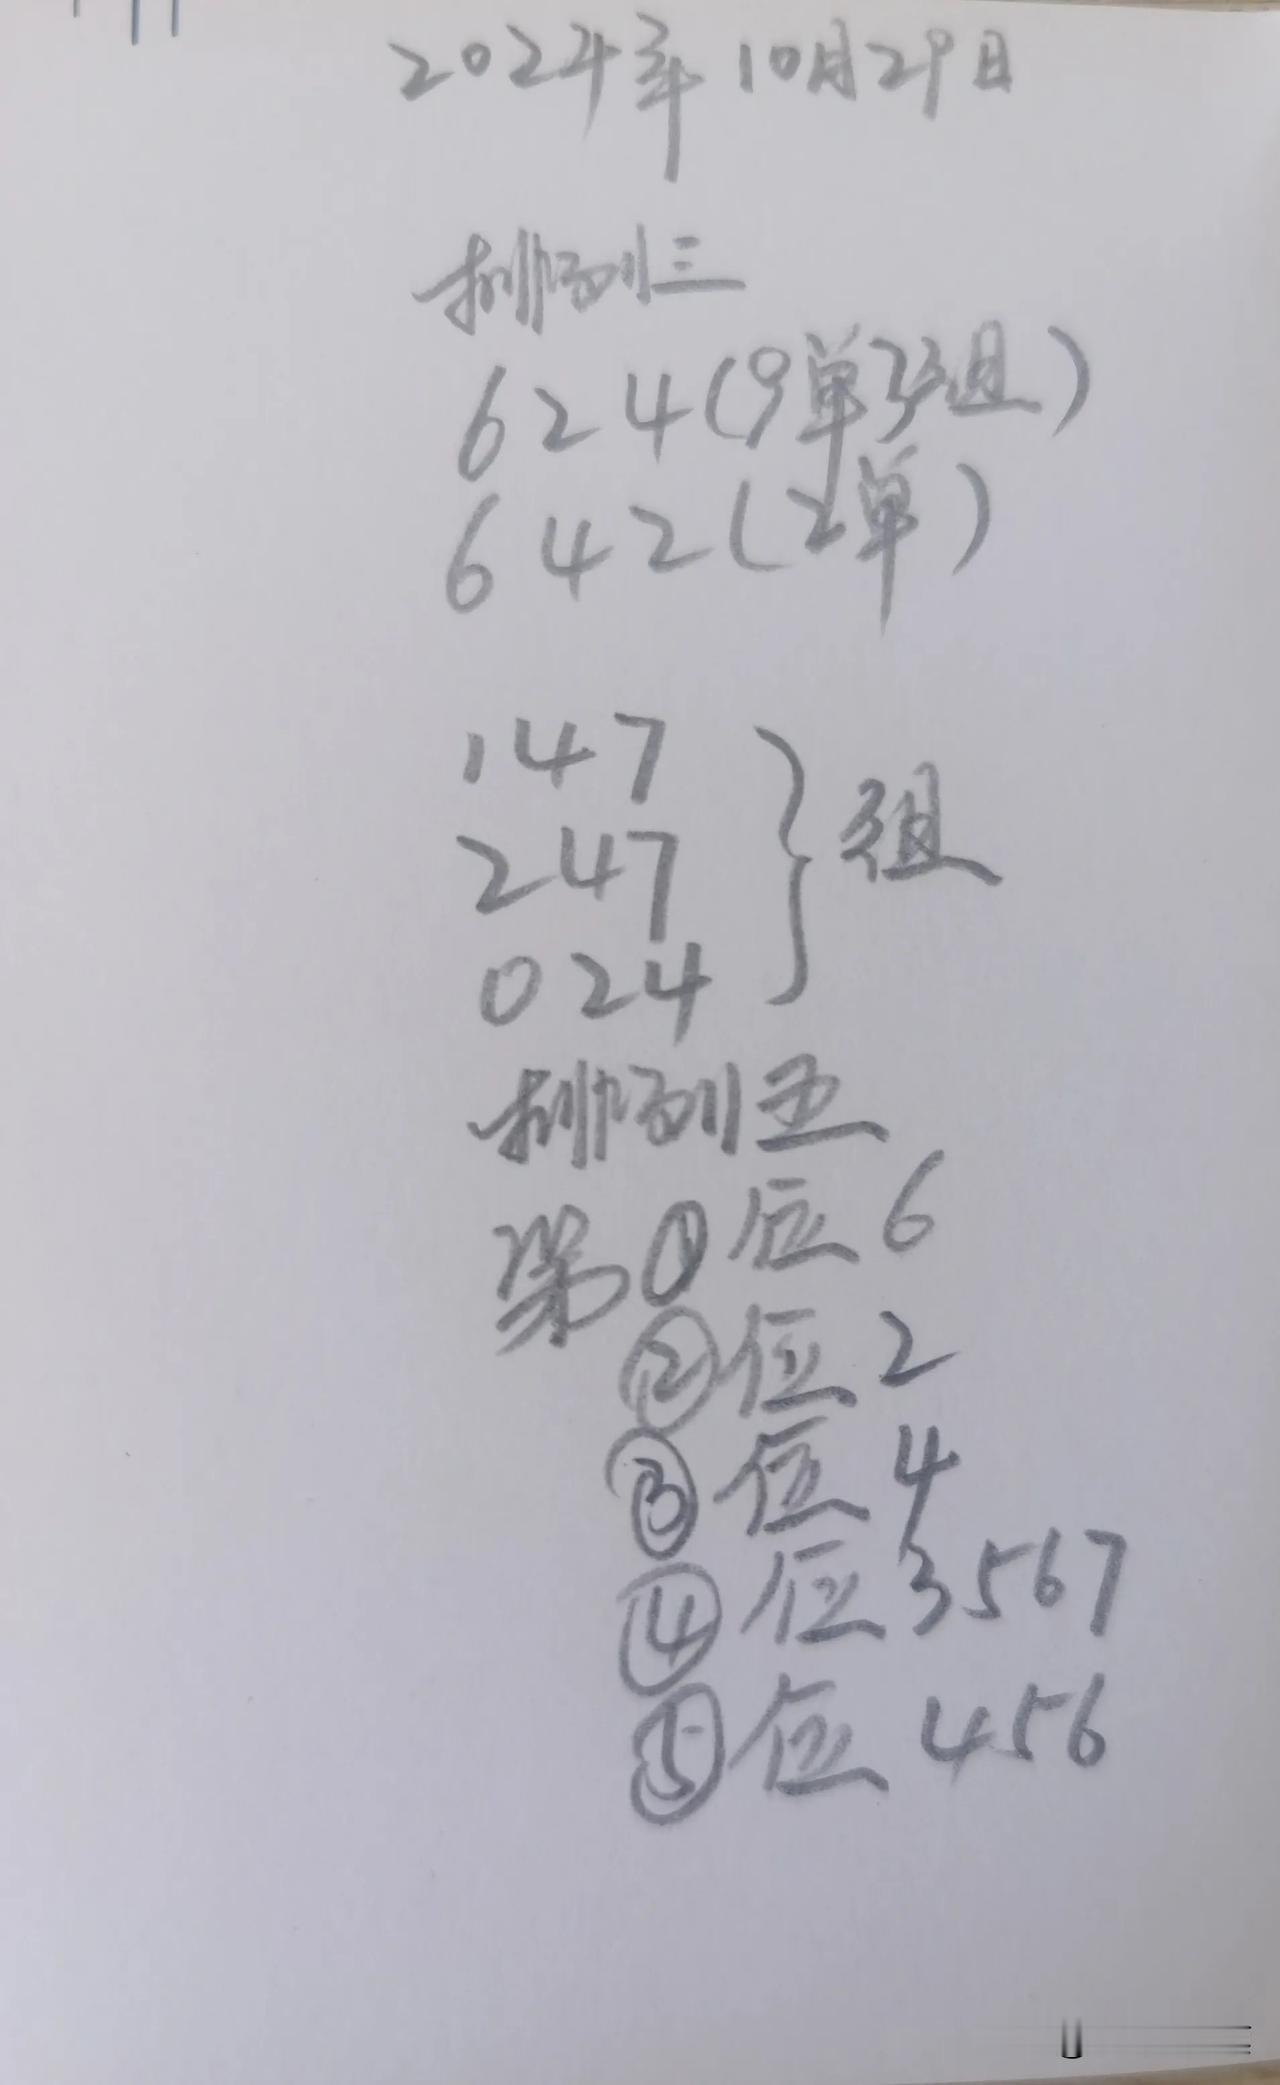 2024年10月29日
排列三
624(9单3组)
642(2单)
147
247
024
组
排列五
第①位6
②位2
③位4
④位3567
⑤位456